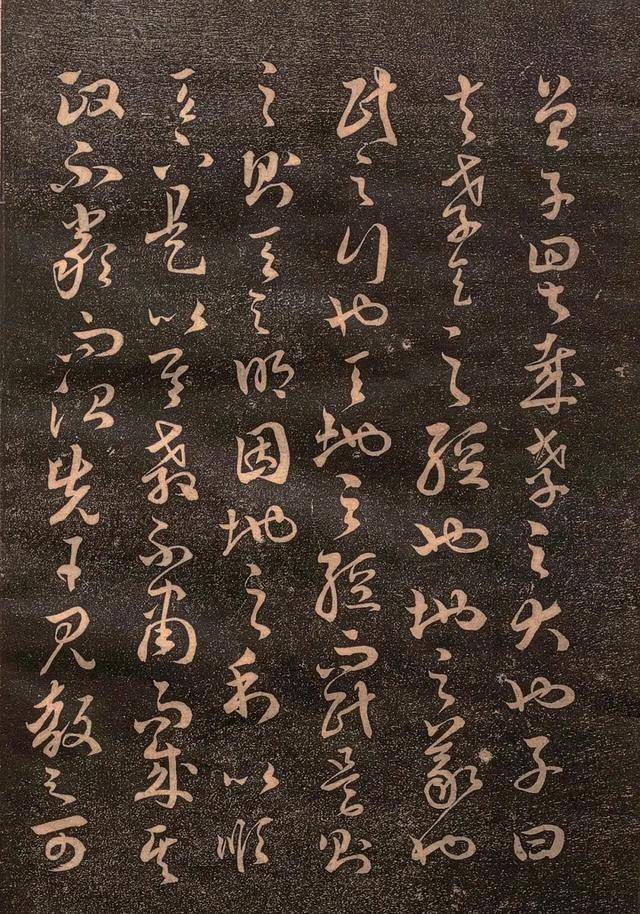 曾子曰甚哉孝之大也子曰
夫孝天之經也地之義也
民之行也天地之經而民是則
之則天之明因地之利以順
天下是以其教不肅而成其
政不嚴而治先王見教之可